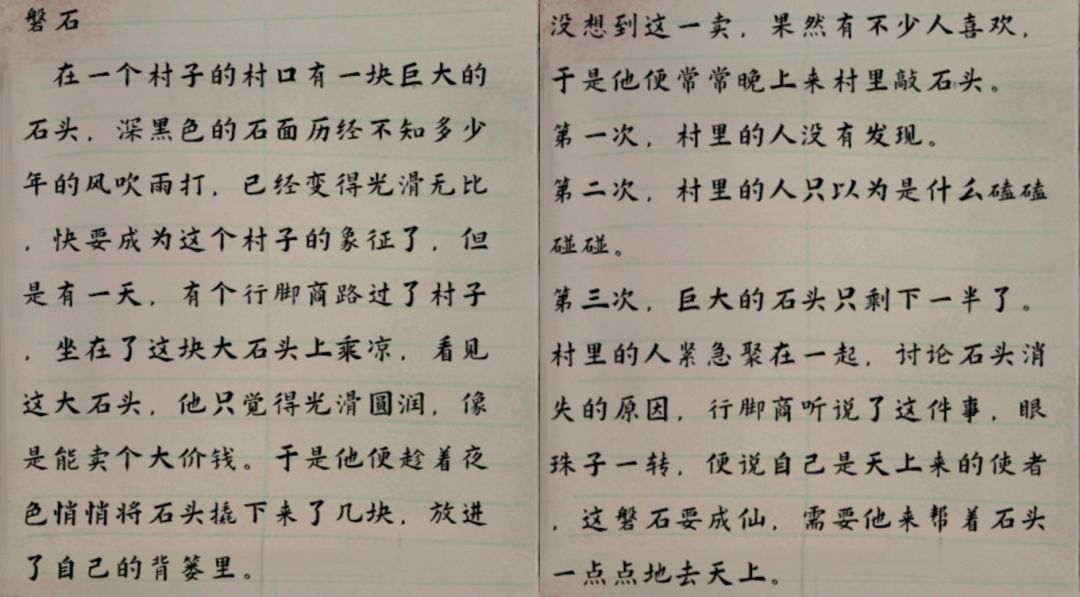 磐石
在一个村子的村口有一块巨大的
石头，深黑色的石面历经不知多少
年的风吹雨打，已经变得光滑无比
，快要成为这个村子的象征了，但
是有一天，有个行脚商路过了村子
，坐在了这块大石头上乘凉，看见
这大石头，他只觉得光滑圆润，像
是能卖个大价钱。于是他便趁着夜
色悄悄将石头撬下来了几块，放进
了自己的背篓里。
没想到这一卖，果然有不少人喜欢，
于是他便常常晚上来村里敲石头。
第一次，村里的人没有发现。
第二次，村里的人只以为是什么磕磕
碰碰。
第三次，巨大的石头只剩下一半了。
村里的人紧急聚在一起，讨论石头消
失的原因，行脚商听说了这件事，眼
珠子一转，便说自己是天上来的使者
，这磐石要成仙，需要他来帮着石头
一点点地去天上。